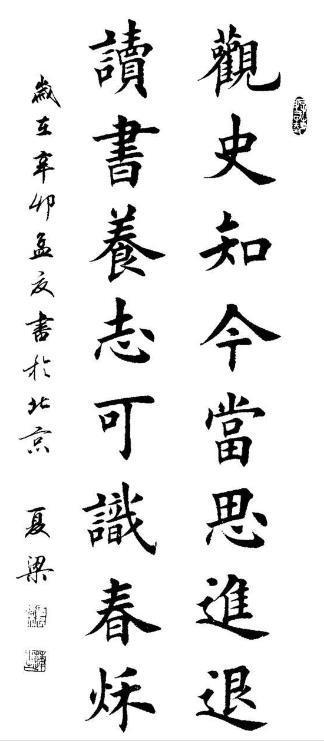 觀史知今當思進退
讀書養志可識春秌
歲在辛卯孟夏書於北京 夏梁